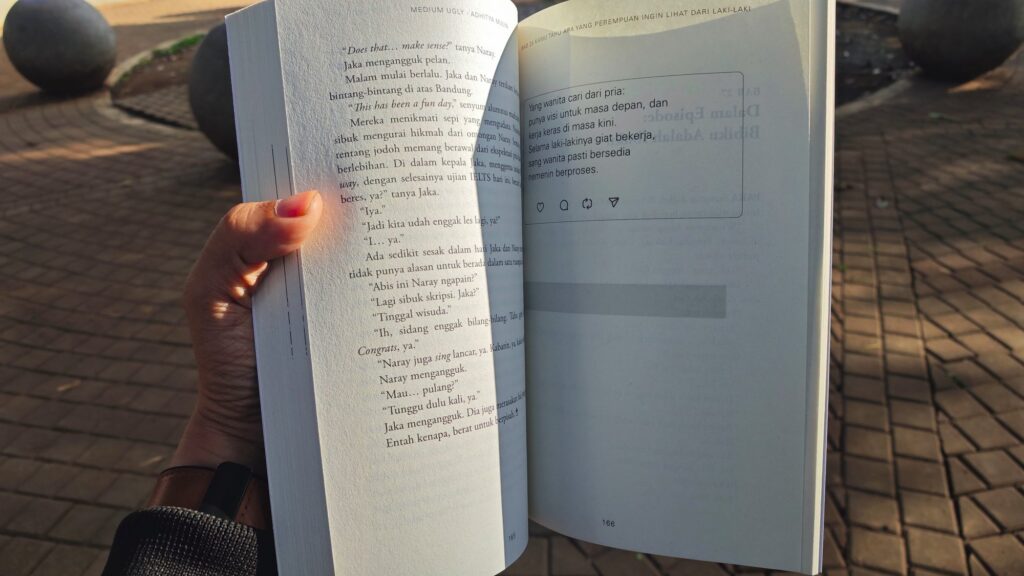 MEDIUM UGLY - ADHITYA
"Does that... make sense?" tanya Naray.
Jaka mengangguk pelan.
Malam mulai berlalu. Jaka dan Naray terikat
bintang-bintang di atas Bandung.
"This has been a fun day," senyum
Mereka menikmati sepi yang
sibuk mengurai hikmah dari omongan Naray
tentang jodoh memang berawal dari ekspektasi
berlebihan. Di dalam kepala Jaka, mengganggu
way, dengan selesainya ujian IELTS hari ini, berarti
beres, ya?" tanya Jaka.
"Iya."
"Jadi kita udah enggak les lagi, ya?"
"I... ya."
Ada sedikit sesak dalam hati Jaka dan Naray
tidak punya alasan untuk berada dalam satu
"Abis ini Naray ngapain?"
"Lagi sibuk skripsi. Jaka?"
"Tinggal wisuda."
"Ih, sidang enggak bilang-bilang.
Congrats, ya."
"Naray juga sing lancar, ya. Kabarin, ya,
Naray mengangguk.
"Mau... pulang?"
"Tunggu dulu kali, ya."
Jaka mengangguk. Dia juga merasakan
Entah kenapa, berat untuk berpisah.
165
YANG PEREMPUAN INGIN LIHAT DARI LAKI-LAKI
Yang wanita cari dari pria:
punya visi untuk masa depan, dan
kerja keras di masa kini.
Selama laki-lakinya giat bekerja,
sang wanita pasti bersedia
nemenin berproses.
166